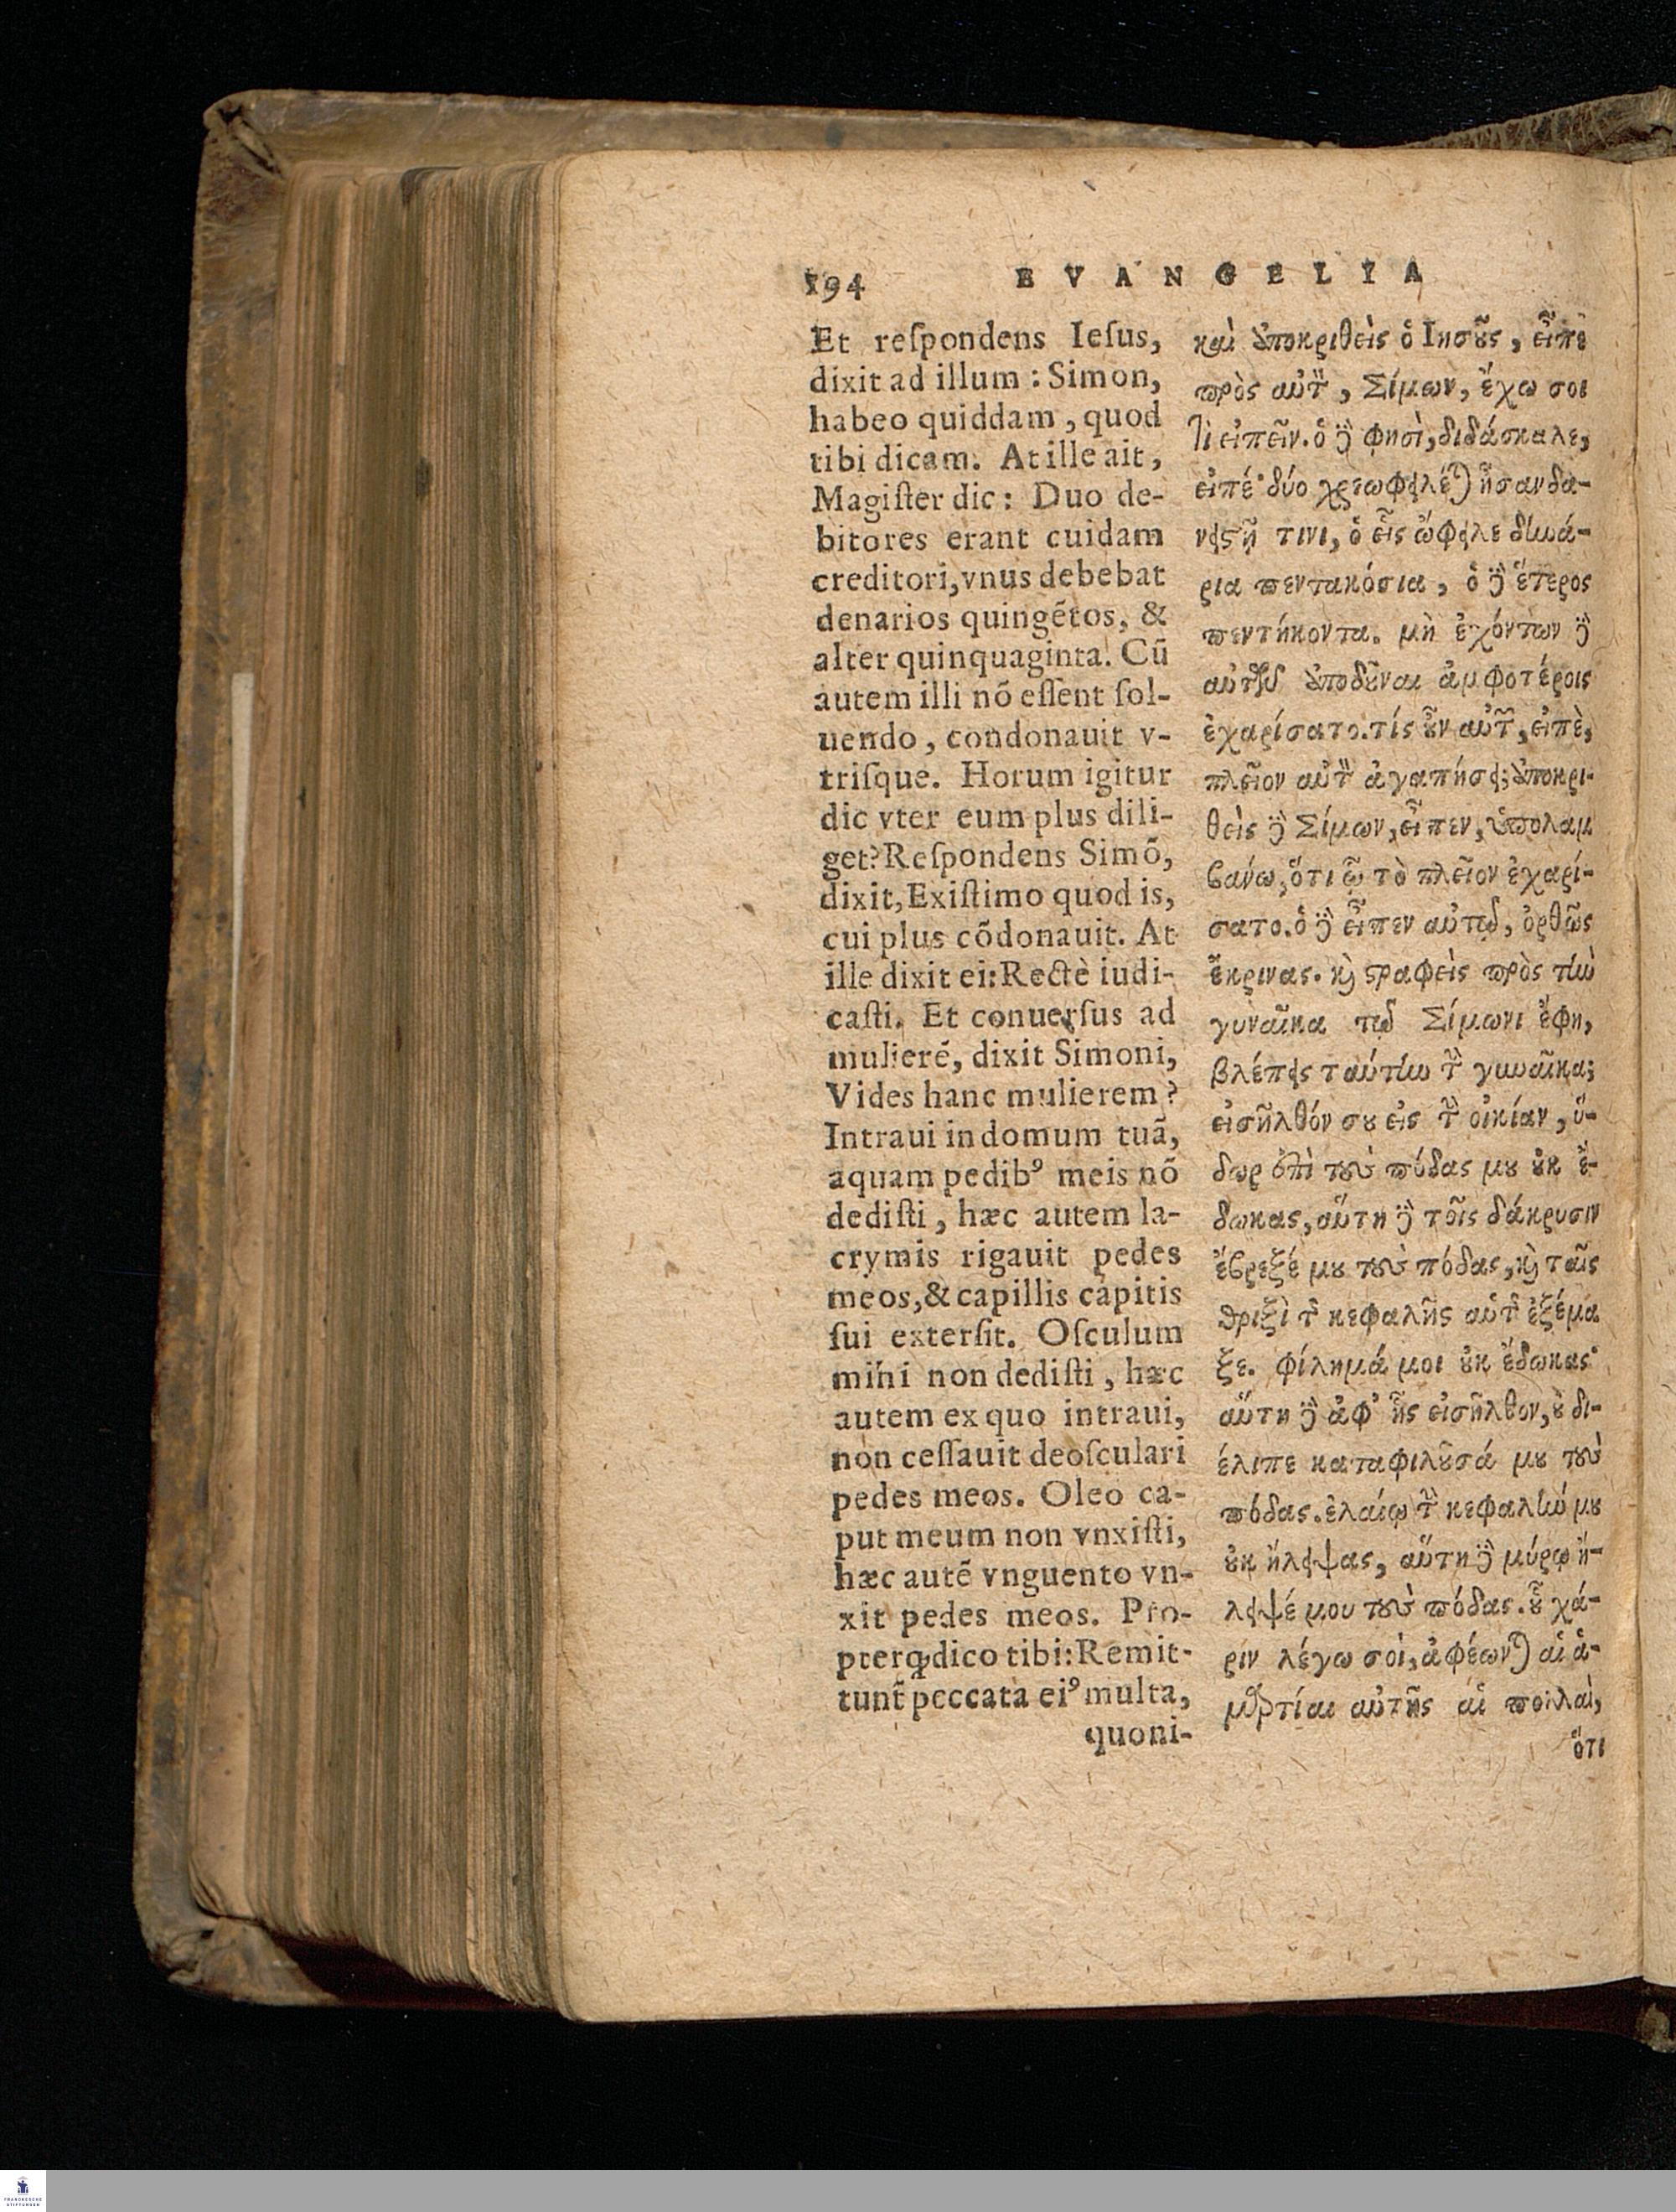 194 EVANGELIA
Et reſpondens Ieſus,
dixit ad illum : Simon,
habeo quiddam , quod
tibi dicam. At ille ait,
Magiſter dic : Duo de-
bitores erant cuidam
creditori, vnus debebat
denarios quingẽtos, &
alter quinquaginta. Cũ
autem illi nõ eſſent ſol-
uendo , condonauit v-
triſque. Horum igitur
dic vter eum plus dili-
get? Reſpondens Simõ,
dixit, Exiſtimo quod is,
cui plus cõdonauit. At
ille dixit ei: Rectè iudi-
caſti. Et conuerſus ad
mulierẽ, dixit Simoni,
Vides hanc mulierem ?
Intraui in domum tuã,
aquam pedibꝰ meis nõ
dediſti , hæc autem la-
crymis rigauit pedes
meos, & capillis capitis
ſui exterſit. Oſculum
mihi non dediſti , hæc
autem ex quo intraui,
non ceſſauit deoſculari
pedes meos. Oleo ca-
put meum non vnxiſti,
hæc autẽ vnguento vn-
xit pedes meos. Pro-
pterꝙ dico tibi: Remit-
tunt᷒ peccata eiꝰ multa,
quoni-
καὶ ἀποκριθεὶς ὁ Ιησοῦς , εἶπε
πρὸς αὐτὸν , Σίμων, ἔχω σοι
τὶ εἰπεῖν. ὁ δὲ φησὶ, διδάσκαλε,
εἰπέ· δύο χρεωφειλέται ἦσαν δα-
νειστῇ τινι, ὁ εἷς ὤφειλε δηνά-
ρια πεντακόσια , ὁ δὲ ἕτερος
πεντήκοντα. μὴ ἐχόντων δὲ
αὐτῶν ἀποδοῦναι ἀμφοτέροις
ἐχαρίσατο. τίς οὖν αὐτῶν, εἰπὲ,
πλεῖον αὐτὸν ἀγαπήσει; ἀποκρι-
θεὶς δὲ Σίμων, εἶπεν, ὑπολαμ
βάνω, ὅτι ᾧ τὸ πλεῖον ἐχαρί-
σατο. ὁ δὲ εἶπεν αὐτῷ, ὀρθῶς
ἔκρινας. καὶ στραφεὶς πρὸς τὴν
γυναῖκα τῷ Σίμωνι ἔφη,
βλέπεις ταύτην τὴν γυναῖκα;
εἰσῆλθόν σου εἰς τὴν οἰκίαν , ὕ-
δωρ ἐπὶ τοὺς πόδας μου οὐκ ἔ-
δωκας, αὕτη δὲ τοῖς δάκρυσιν
ἔβρεξέ μου τοὺς πόδας, καὶ ταῖς
θριξὶ τῆς κεφαλῆς αὑτῆς ἐξέμα
ξε. φίλημά μοι οὐκ ἔδωκας·
αὕτη δὲ ἀφ' ἧς εἰσῆλθον, οὐ δι-
έλιπε καταφιλοῦσά μου τοὺς
πόδας. ἐλαίῳ τὴν κεφαλήν μου
οὐκ ἤλειψας, αὕτη δὲ μύρῳ ἤ-
λειψέ μου τοὺς πόδας. οὗ χά-
ριν λέγω σοὶ, ἀφέωνται αἱ ἁ-
μαρτίαι αὐτῆς αἱ πολλαὶ,
ὅτι
FRANCKESCHE
STIFTUNGEN